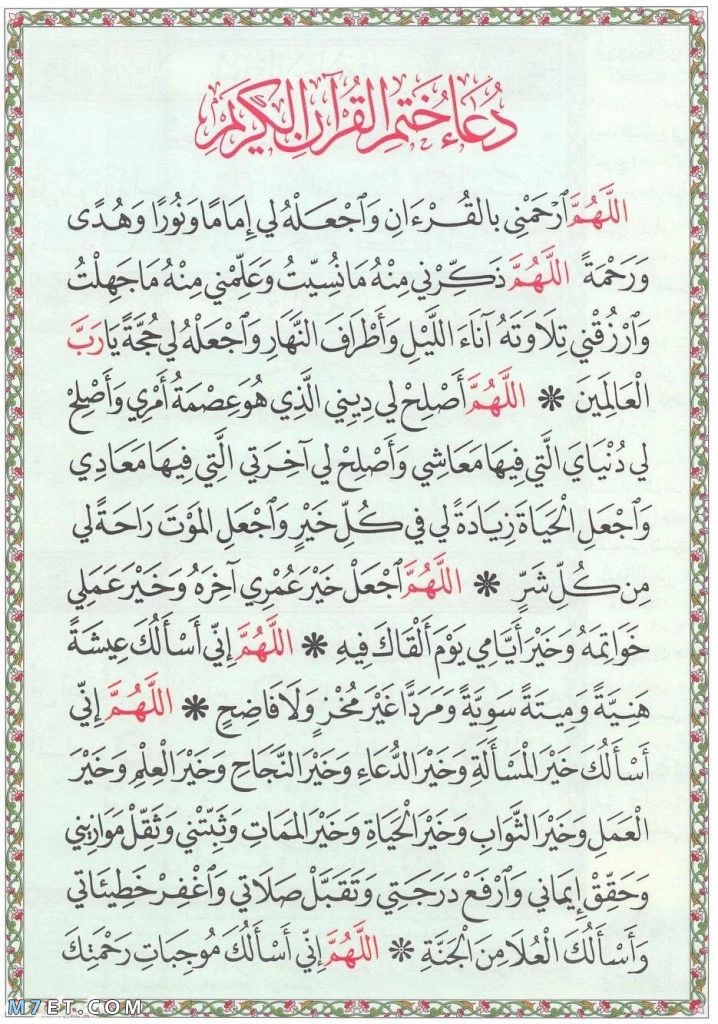 دُعَاءُ خَتْمِ الْقُرْآنِ الْكَرِيمِ
اللَّهُمَّ ٱرْحَمْنِي بِالقُرْءَانِ وَٱجْعَلْهُ لِي إِمَامًا وَنُورًا وَهُدًى
وَرَحْمَةً اللَّهُمَّ ذَكِّرْنِي مِنْهُ مَا نُسِّيتُ وَعَلِّمْنِي مِنْهُ مَا جَهِلْتُ
وَٱرْزُقْنِي تِلَاوَتَهُ آنَاءَ اللَّيْلِ وَأَطْرَافَ النَّهَارِ وَٱجْعَلْهُ لِي حُجَّةً يَا رَبَّ
الْعَالَمِينَ * اللَّهُمَّ أَصْلِحْ لِي دِينِي الَّذِي هُوَ عِصْمَةُ أَمْرِي وَأَصْلِحْ
لِي دُنْيَايَ الَّتِي فِيهَا مَعَاشِي وَأَصْلِحْ لِي آخِرَتِي الَّتِي فِيهَا مَعَادِي
وَٱجْعَلِ الْحَيَاةَ زِيَادَةً لِي فِي كُلِّ خَيْرٍ وَٱجْعَلِ المَوْتَ رَاحَةً لِي
مِن كُلِّ شَرٍّ * اللَّهُمَّ ٱجْعَلْ خَيْرَ عُمْرِي آخِرَهُ وَخَيْرَ عَمَلِي
خَوَاتِمَهُ وَخَيْرَ أَيَّامِي يَوْمَ أَلْقَاكَ فِيهِ * اللَّهُمَّ إِنِّي أَسْأَلُكَ عِيشَةً
هَنِيَّةً وَمِيتَةً سَوِيَّةً وَمَرَدًّا غَيْرَ مُخْزٍ وَلَا فَاضِحٍ * اللَّهُمَّ إِنِّي
أَسْأَلُكَ خَيْرَ الْمَسْأَلَةِ وَخَيْرَ الدُّعَاءِ وَخَيْرَ النَّجَاحِ وَخَيْرَ الْعِلْمِ وَخَيْرَ
الْعَمَلِ وَخَيْرَ الثَّوَابِ وَخَيْرَ الْحَيَاةِ وَخَيْرَ المَمَاتِ وَثَبِّتْنِي وَثَقِّلْ مَوَازِينِي
وَحَقِّقْ إِيمَانِي وَٱرْفَعْ دَرَجَتِي وَتَقَبَّلْ صَلَاتِي وَٱغْفِرْ خَطِيئَاتِي
وَأَسْأَلُكَ الْعُلَا مِنَ الْجَنَّةِ * اللَّهُمَّ إِنِّي أَسْأَلُكَ مُوجِبَاتِ رَحْمَتِكَ
M7ET.COM